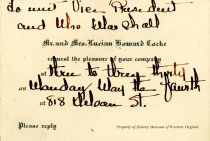 do meet Vice President
and Mrs. Marshall
Mr. and Mrs. Lucian Howard Cocke
request the pleasure of your company
three to three thirty
on Monday May the fourth
at 818 Nelson St.
Please reply
Property of History Museum of Western Virginia